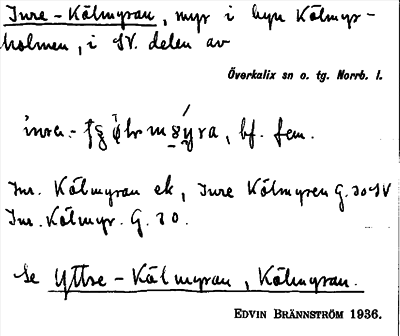 Inre-Kälmyran, myr i byn Kälmyr-
holmen, i SV. delen av
Överkalix sn o. tg. Norrb. l.
bf. fem.
Inr. Kälmyran ek, Inre Kälmyren G. 30 SV
Inr. Kälmyr. G. 30.
Se Yttre-Kälmyran, Kälmyran.
EDVIN BRÄNNSTRÖM 1936.